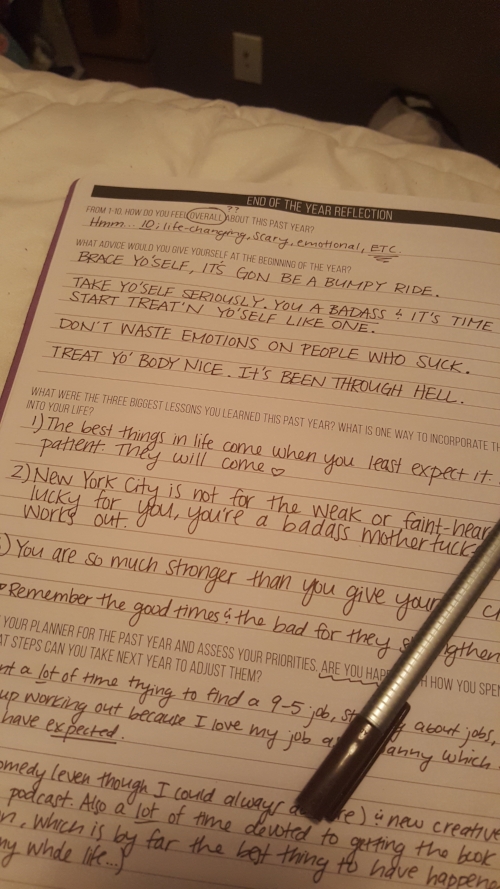 END OF THE YEAR REFLECTION
FROM 1-10, HOW DO YOU FEEL OVERALL ABOUT THIS PAST YEAR?
??
Hmm... 10; life-changing, scary, emotional, ETC.
WHAT ADVICE WOULD YOU GIVE YOURSELF AT THE BEGINNING OF THE YEAR?
BRACE YO'SELF, IT'S GON BE A BUMPY RIDE.
TAKE YO'SELF SERIOUSLY. YOU A BADASS & IT'S TIME
START TREAT'N YO'SELF LIKE ONE.
DON'T WASTE EMOTIONS ON PEOPLE WHO SUCK.
TREAT YO' BODY NICE. IT'S BEEN THROUGH HELL.
WHAT WERE THE THREE BIGGEST LESSONS YOU LEARNED THIS PAST YEAR? WHAT IS ONE WAY TO INCORPORATE
INTO YOUR LIFE?
1) The best things in life come when you least expect it.
patient. They will come ♡
2) New York City is not for the weak or
lucky for you, you're a badass
works out.
) You are so much stronger than you give
Remember the good times & the bad for they
YOUR PLANNER FOR THE PAST YEAR AND ASSESS YOUR PRIORITIES. ARE YOU HOW YOU
STEPS CAN YOU TAKE NEXT YEAR TO ADJUST THEM?
a lot of time trying to find a 9-5 job, about jobs,
up working out because I love my job which
have expected.
(even though I could always & new creative
podcast. Also a lot of time devoted to getting the book
which is by far the best thing to have
my whole life...)